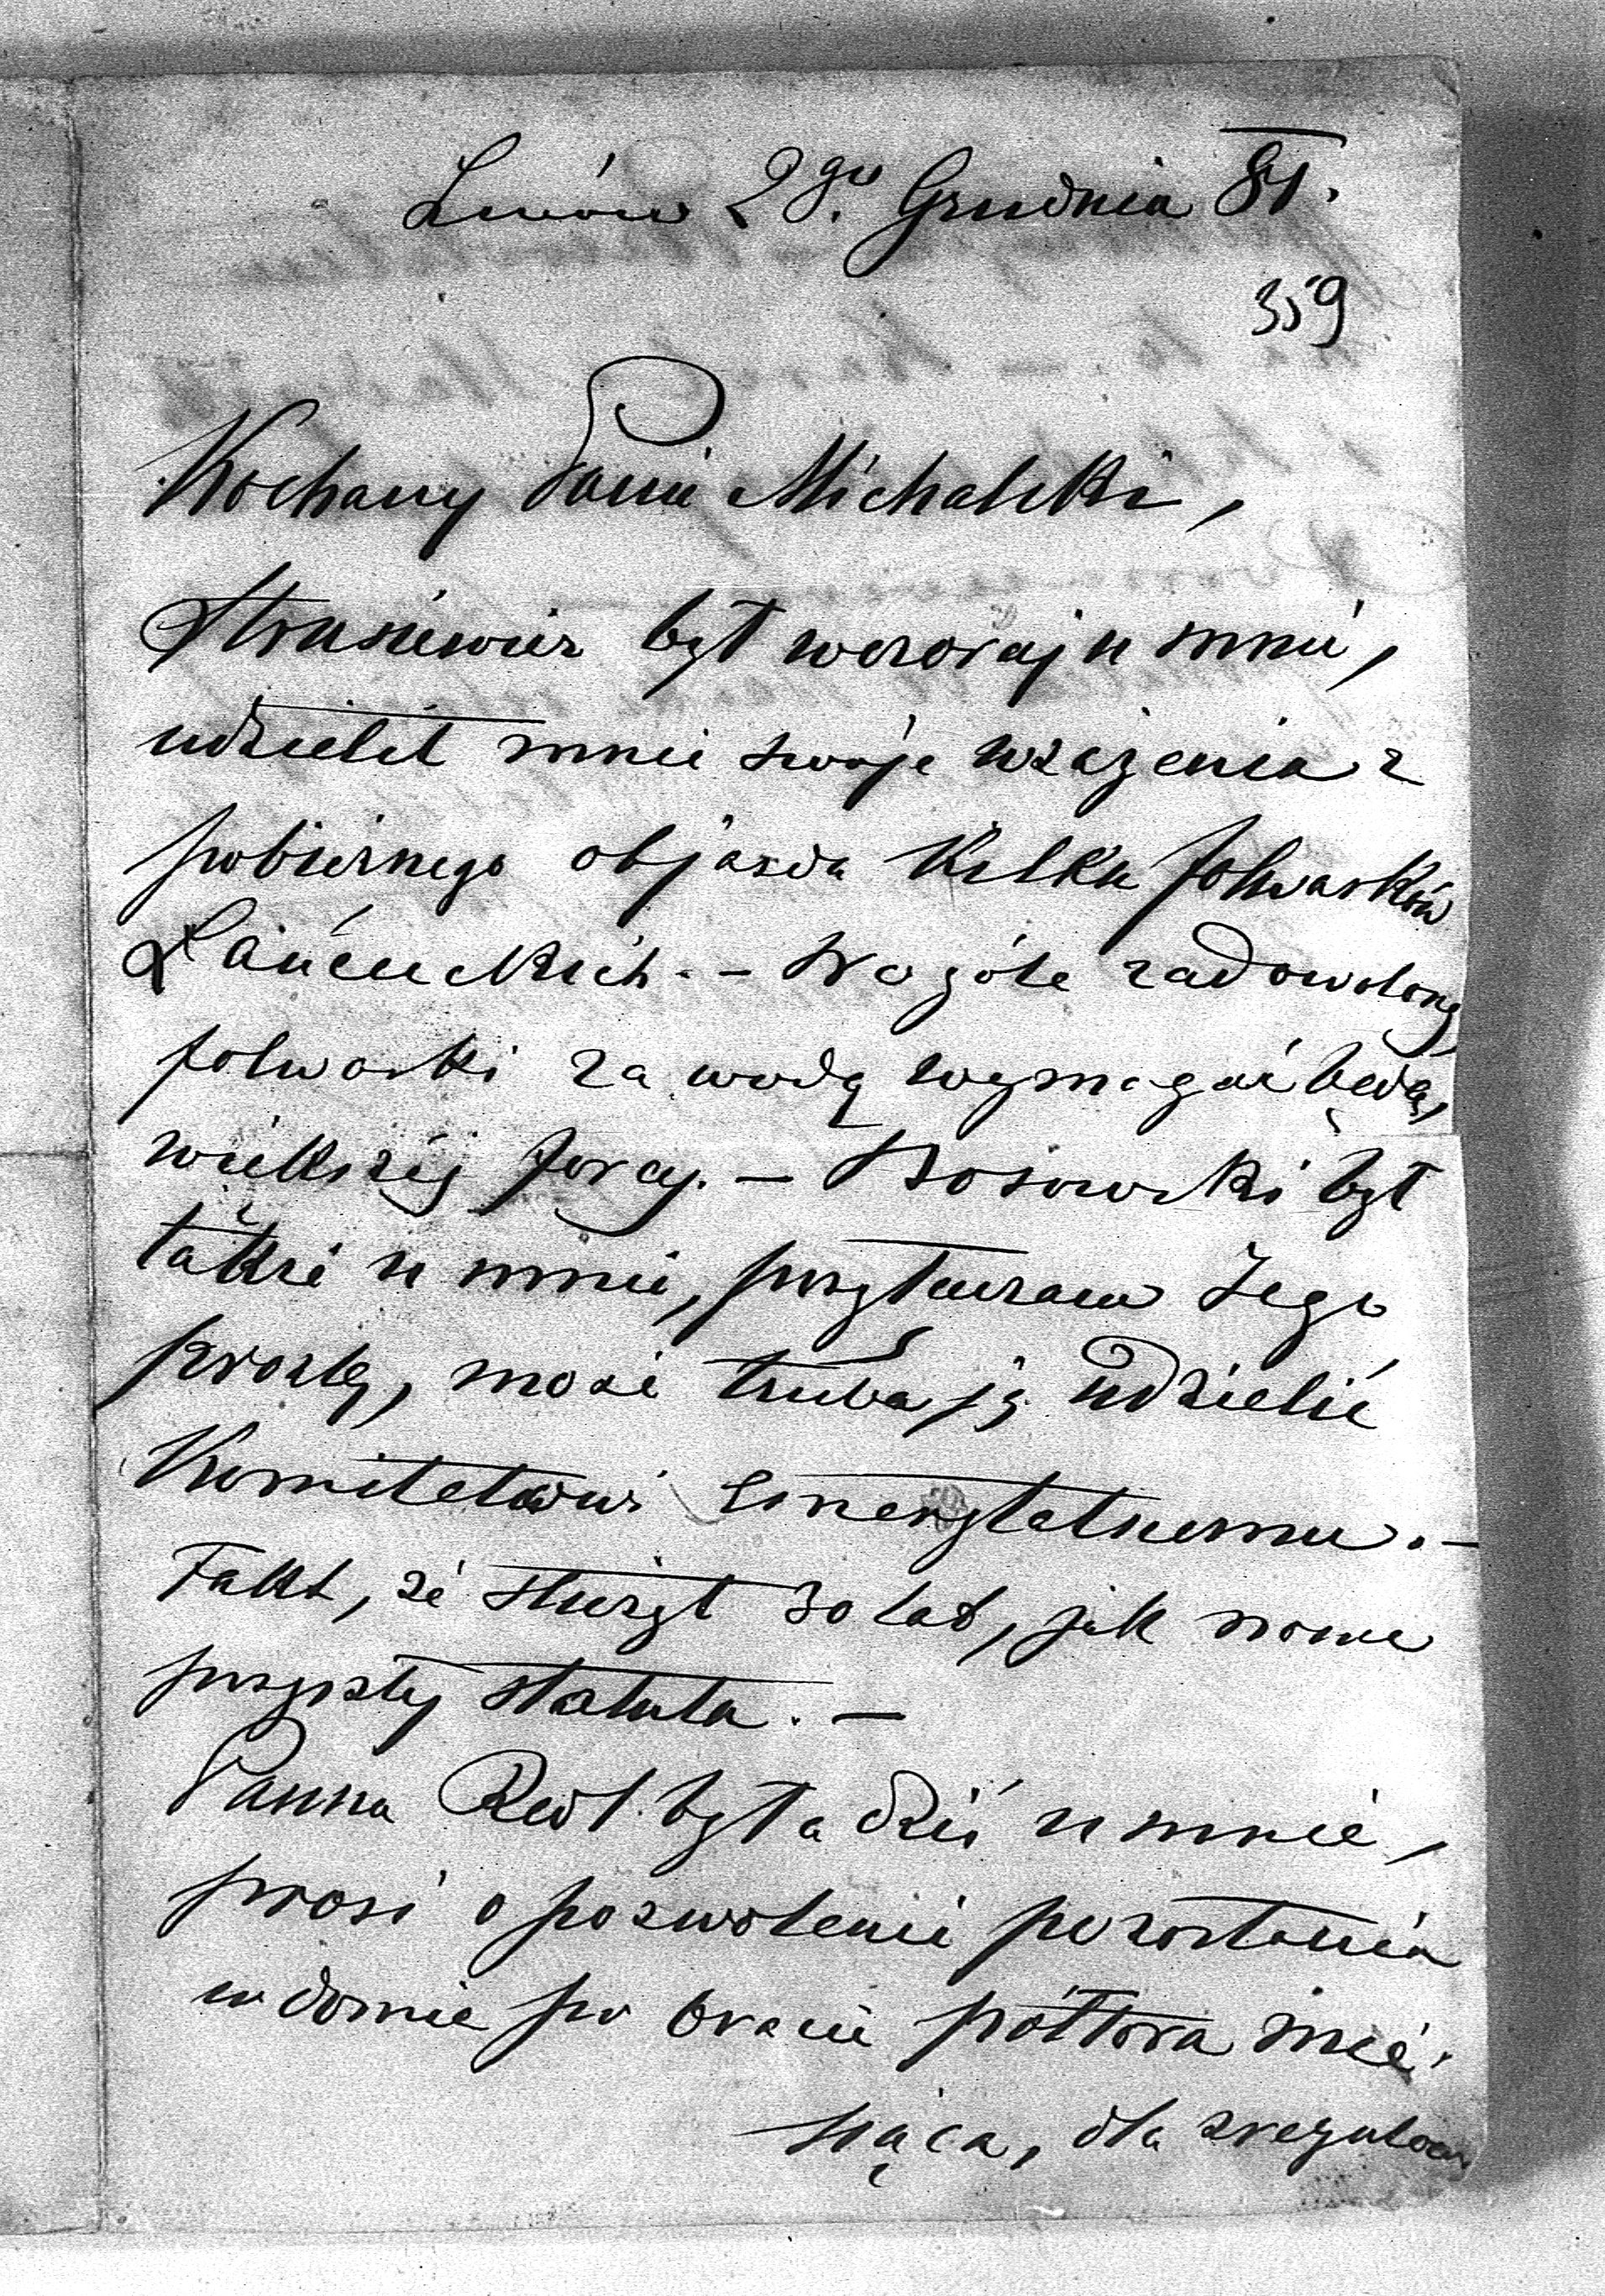 Lwów 2go. Grudnia 81.
359
Kochany Panie Michalski,
Strusiewicz był wczoraj u mnie,
udzielił mnie swoje wrażenia z
pobieżnego objazdu kilku folwarków
Łańcuckich. – W ogóle zadowolony
folwarki za wodą wymagać będą,
większej forcy. – Kosowski był
także u mnie, przytaczam Jego
prośbę, może trzeba ją udzielić
Komitetowi Emerytalnemu. –
Fakt, że służył 30 lat, jak mowa
przyszły statuta. –
Panna Redl. była dziś u mnie,
prosi o pozwolenie pozostania
w domie po bracie półtora mie-
siąca, dla zregulow